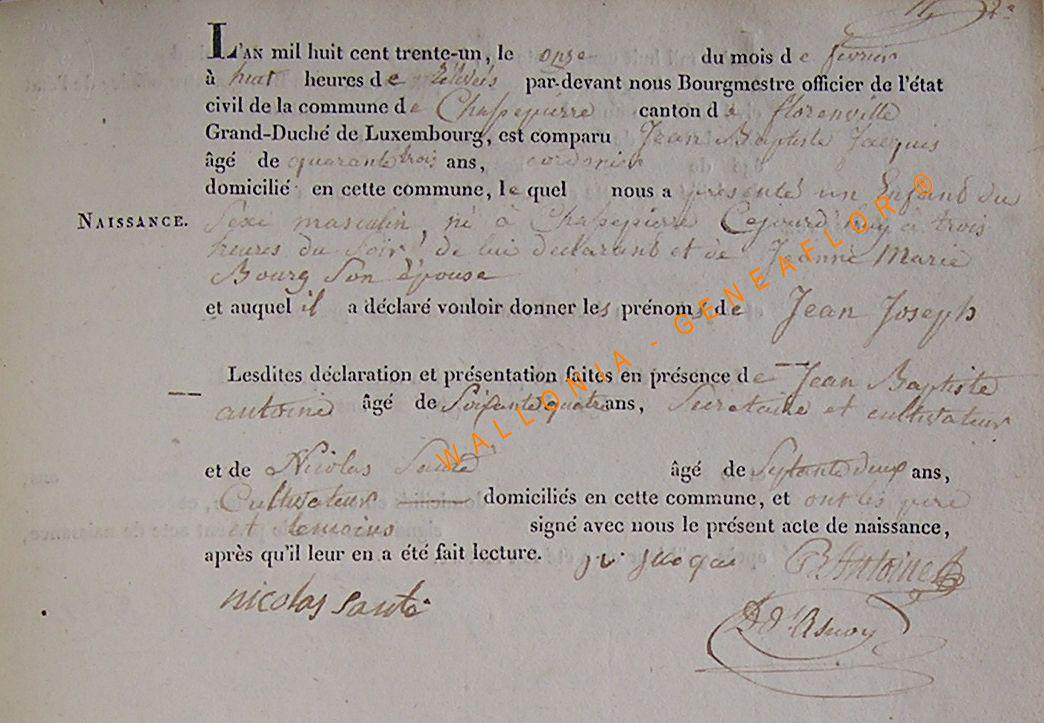 L'AN mil huit cent trente-un, le onze du mois de fevrier
à huit heures de relevés par-devant nous Bourgmestre officier de l'état
civil de la commune de Chassepierre canton de florenville
Grand-Duché de Luxembourg, est comparu Jean Baptiste Jacques
âgé de quarante trois ans, cordonier
domicilié en cette commune, le quel nous a présenté un Enfant du
NAISSANCE. Sexe masculin, né à Chassepierre Cejourd'huy à trois
heures du Soir, de lui declarant et de Jeanne Marie
Bourg Son épouse
et auquel il a déclaré vouloir donner les prénoms de Jean Joseph
Lesdites déclaration et présentation faites en présence de Jean Baptiste
antoine âgé de Soixante quatre ans, Secretaire et cultivateur
et de Nicolas Santé âgé de Septante deux ans,
Cultivateur domiciliés en cette commune, et ont les pere
et temoins signé avec nous le présent acte de naissance,
après qu'il leur en a été fait lecture.
B. Antoine
nicolas santé
D'Asnoy
WALLONIA - GENEAFLOR ®